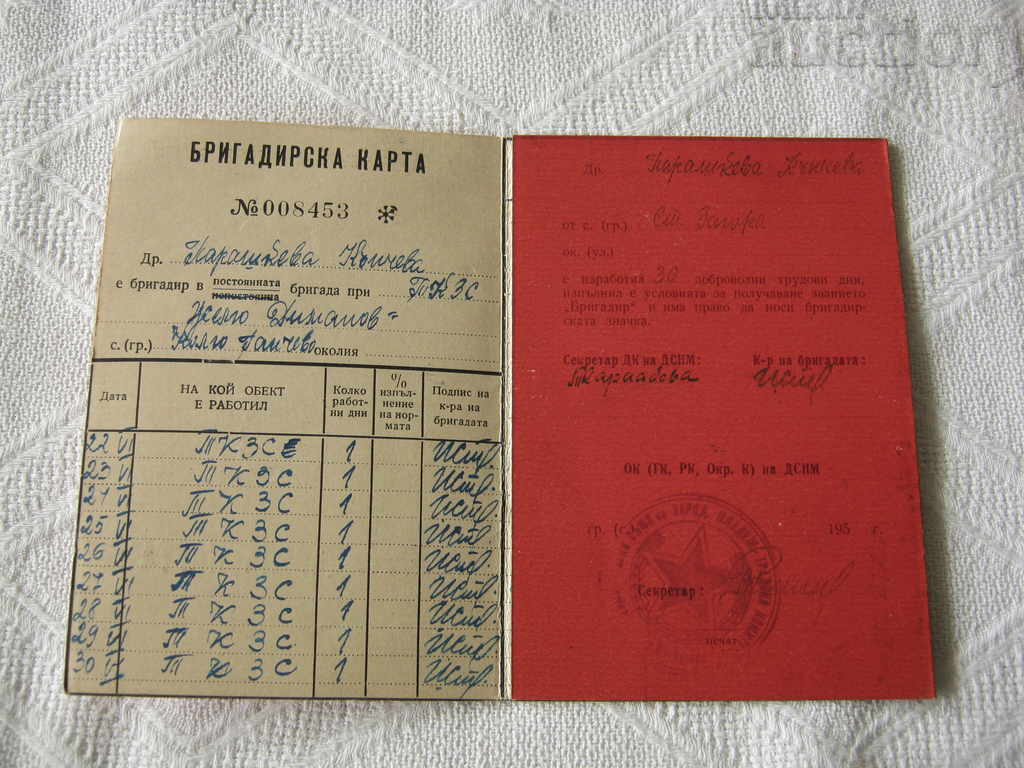 БРИГАДИРСКА КАРТА
№ 008453
Др. Парашкева Кънчева
е бригадир в постоянната
непостоянна бригада при ТКЗС
Жельо Диманов"
с. (гр.) Кольо Ганчево околия
Дата | НА КОЙ ОБЕКТ Е РАБОТИЛ | Колко работни дни | % изпълнение на нормата | Подпис на к-ра на бригадата
22 VI ТКЗС 1
23 VI ТКЗС 1
24 VI ТКЗС 1
25 VI ТКЗС 1
26 VI ТКЗС 1
27 VI ТКЗС 1
28 VI ТКЗС 1
29 VI ТКЗС 1
30 VI ТКЗС 1
Др. Парашкева Кънчева
от с. (гр.) Ст. Загора
ок. (ул.)
е наработил 30 доброволни трудови дни,
изпълнил е условията за получаване званието
„Бригадир“ и има право да носи бригадир-
ската значка.
Секретар ДК на ДСНМ: К-р на бригадата:
ОК (ГК, РК, Окр. К) на ДСНМ
гр. (с.) 195 г.
Секретар:
печат